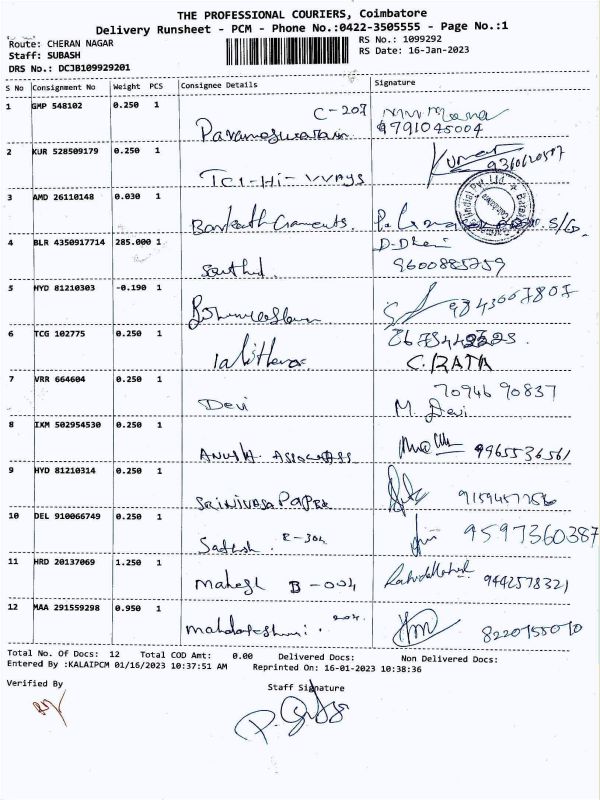 THE PROFESSIONAL COURIERS, Coimbatore
Delivery Runsheet - PCM - Phone No.:0422-3505555 - Page No.:1
Route: CHERAN NAGAR
RS No.: 1099292
Staff: SUBASH
RS Date: 16-Jan-2023
DRS No.: DCJB109929201
S No Consignment No Weight PCS Consignee Details Signature
1 GMP 548102 0.250 1
C-207
Parameswaran
9791045004
2 KUR 528509179 0.250 1
TCI-Hi-WAYS
Kumar
3 AMD 26110148 0.030 1
Garments.
4 BLR 4350917714 285.000 1
9600885759
5 HYD 81210303 -0.190 1
9843007807
6 TCG 102775 0.250 1
Lalitha
C. RATA
7 VRR 664604 0.250 1
70946 90837
Devi
M. Devi
8 IXM 502954530 0.250 1
ASSOCIATES
9965536561
9 HYD 81210314 0.250 1
SRINIVASA PAPER
10 DEL 910066749 0.250 1
Sathish.
9597360387
11 HRD 20137069 1.250 1
Mahesh B-004
9442578321
12 MAA 291559298 0.950 1
204.
Total No. Of Docs: 12 Total COD Amt: 0.00 Delivered Docs: Non Delivered Docs:
Entered By :KALAIPCM 01/16/2023 10:37:51 AM Reprinted On: 16-01-2023 10:38:36
Verified By
Staff Signature